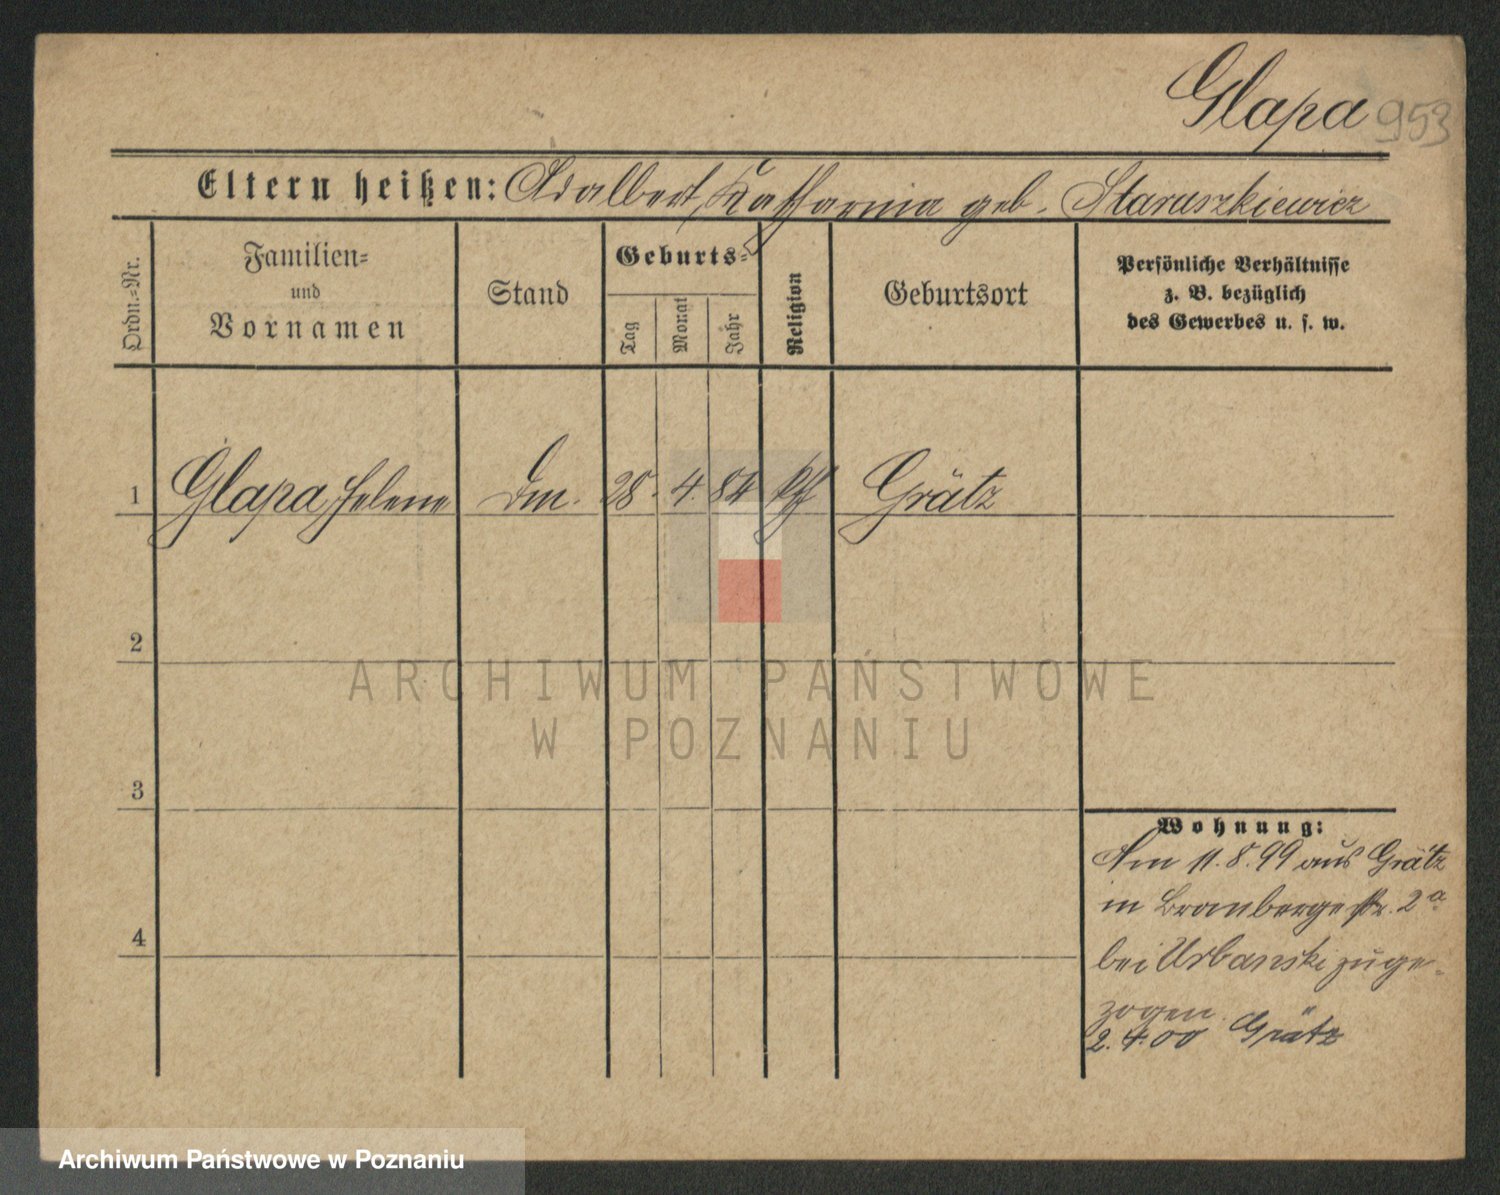 Glapa 953
Eltern heißen: Adalbert, Katharina geb. Staruszkiewicz
Ordn.-Nr.
Familien-
und
Vornamen
Stand
Geburts-
Tag
Monat
Jahr
Religion
Geburtsort
Persönliche Verhältnisse
z. B. bezüglich
des Gewerbes u. s. w.
1 Glapa, Helene 28. 4. 84 kath Grätz
2
3
4
ARCHIWUM PAŃSTWOWE
W POZNANIU
Wohnung:
Am 11.8.99 aus Grätz
in str. 2a
bei Urbanski zuge-
zogen.
2.4.00 Grätz
Archiwum Państwowe w Poznaniu